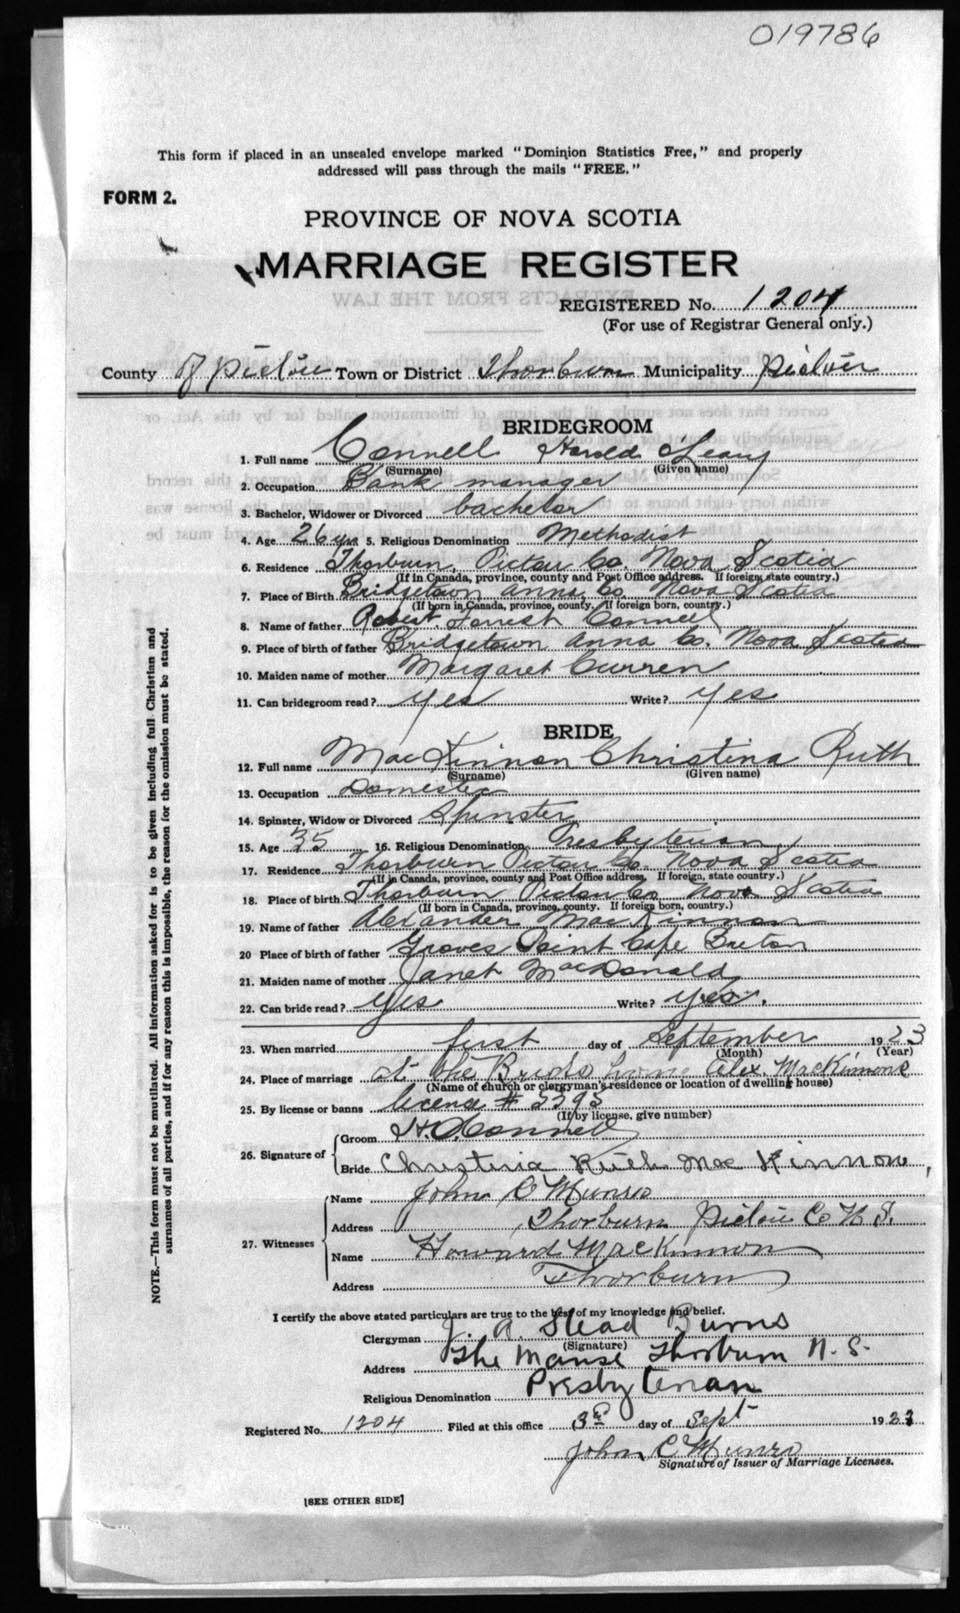 019786
This form if placed in an unsealed envelope marked "Dominion Statistics Free," and properly
addressed will pass through the mails "FREE."
FORM 2.
PROVINCE OF NOVA SCOTIA
MARRIAGE REGISTER
REGISTERED No. 1204
(For use of Registrar General only.)
County of Pictou Town or District Thorburn Municipality Pictou
BRIDEGROOM
1. Full name Connell Harold
(Surname) (Given name)
2. Occupation Bank manager
3. Bachelor, Widower or Divorced bachelor
4. Age 26 yrs 5. Religious Denomination Methodist
6. Residence Thorburn, Pictou Co. Nova Scotia
(If in Canada, province, county and Post Office address. If foreign, state country.)
7. Place of Birth Bridgetown Anna Co Nova Scotia
(If born in Canada, province, county. If foreign born, country.)
8. Name of father Robert Forrest Connell
9. Place of birth of father Bridgetown Anna Co. Nova Scotia
10. Maiden name of mother Margaret Curren
11. Can bridegroom read? yes Write? yes
BRIDE
12. Full name MacKinnon Christina Ruth
(Surname) (Given name)
13. Occupation Domestic
14. Spinster, Widow or Divorced Spinster
15. Age 35 16. Religious Denomination Presbyterian
17. Residence Thorburn Pictou Co. Nova Scotia
(If in Canada, province, county and Post Office address. If foreign, state country.)
18. Place of birth Thorburn Pictou Co Nova Scotia
(If born in Canada, province, county. If foreign born, country.)
19. Name of father Alexander MacKinnon
20 Place of birth of father Groves Point Cape Breton
21. Maiden name of mother Janet MacDonald
22. Can bride read? yes Write? yes.
23. When married first day of September 1923
(Month) (Year)
24. Place of marriage at the Brides home Alex. MacKinnons
(Name of church or clergyman's residence or location of dwelling house)
25. By license or banns license #
(If by license, give number)
26. Signature of Groom Connell
Bride Christina Ruth MacKinnon,
27. Witnesses
Name John C Munro
Address Thorburn Pictou Co N.S.
Name Howard MacKinnon
Address Thorburn
I certify the above stated particulars are true to the best of my knowledge and belief.
Clergyman J. A. Stead Burns
(Signature)
Address The Manse Thorburn N.S.
Religious Denomination Presbyterian
Registered No. 1204 Filed at this office 3rd day of Sept 1923
John C Munro
Signature of Issuer of Marriage Licenses.
[SEE OTHER SIDE]
NOTE.—This form must not be mutilated. All information asked for is to be given including full Christian and
surnames of all parties, and if for any reason this is impossible, the reason for the omission must be stated.